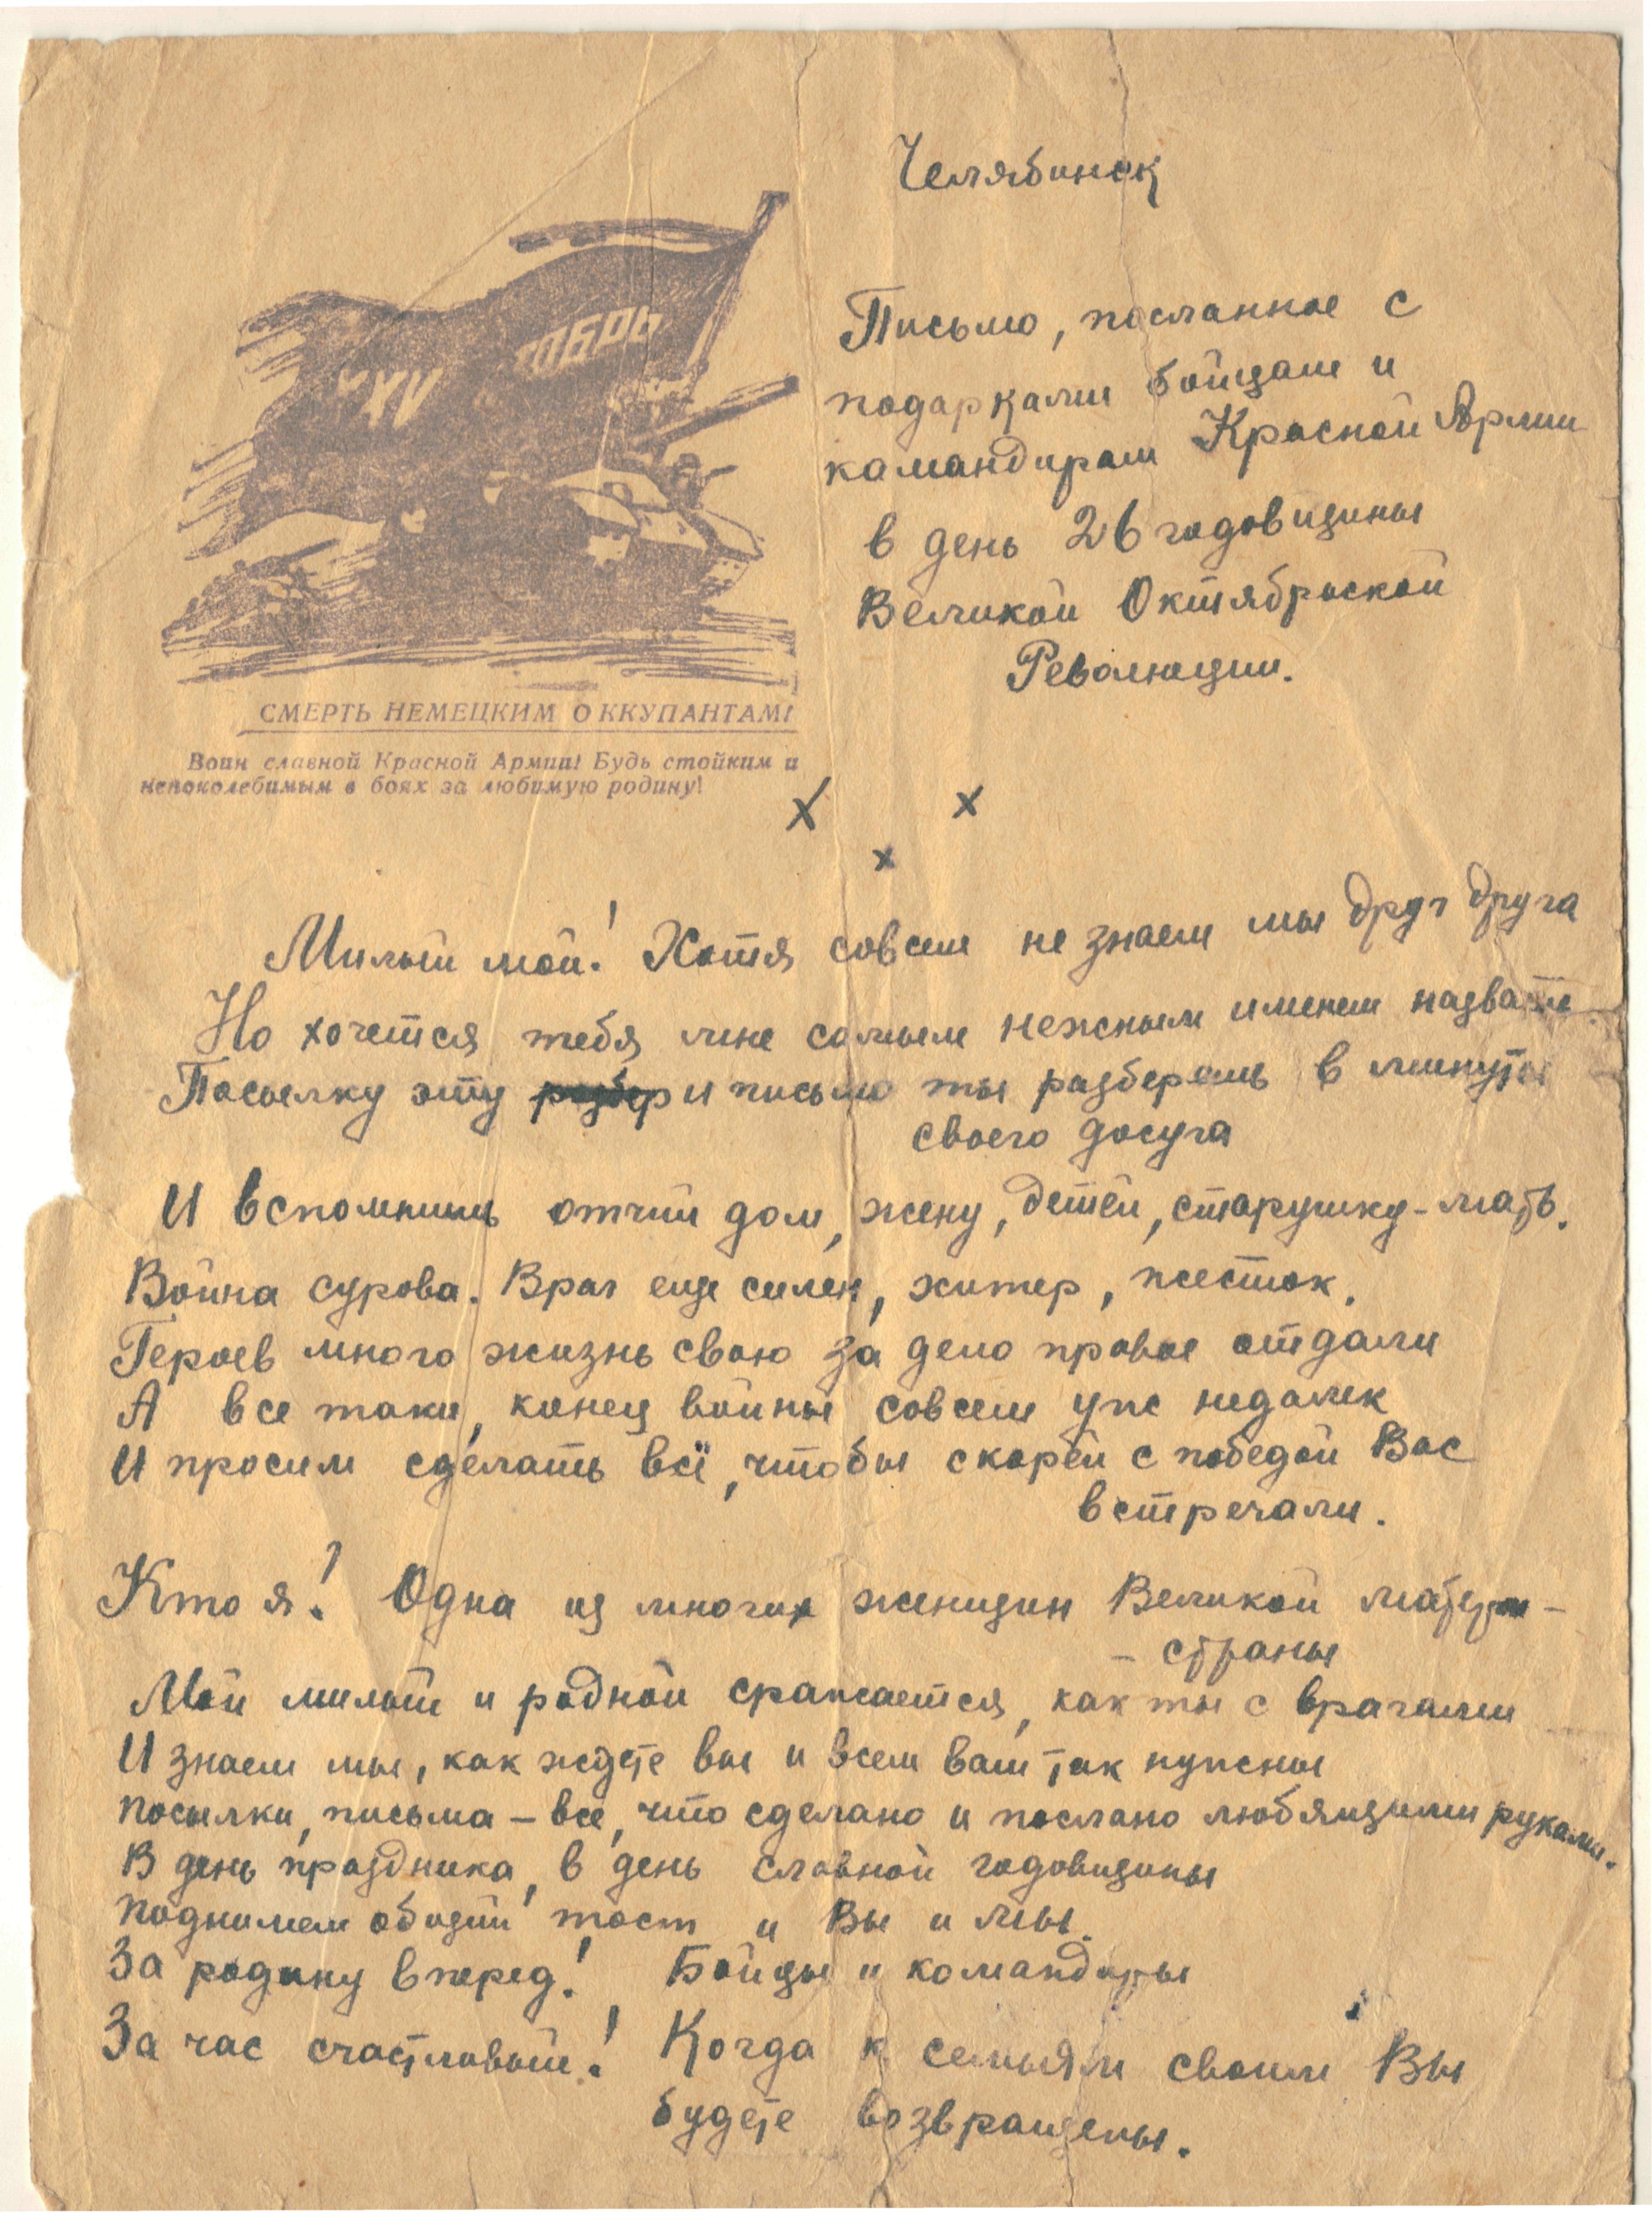 Челябинск
XXV
ОКТЯБРЬ
Письмо, посланное с
подарками бойцам и
командирам Красной Армии
в день 26 годовщины
Великой Октябрьской
Революции.
СМЕРТЬ НЕМЕЦКИМ ОККУПАНТАМ!
Воин славной Красной Армии! Будь стойким и
непоколебимым в боях за любимую родину!
х х
х
Милый мой! Хотя совсем не знаем мы друг друга
Но хочется тебя мне самым нежным именем назвать
Посылку эту и письмо ты разберешь в минуты
своего досуга
И вспомнишь отчий дом, жену, детей, старушку-мать.
Война сурова. Враг еще силен, хитер, жесток.
Героев много жизнь свою за дело правое отдали
А все таки, конец войны совсем уже недалек
И просим сделать всё, чтобы скорей с победой Вас
встречали.
Кто я! Одна из многих женщин Великой матери-
- страны
Мой милый и родной сражается, как ты с врагами
И знаем мы, как ждете вы и всем вам так нужны
посылки, письма - все, что сделано и послано любящими руками.
В день праздника, в день славной годовщины
поднимем общий тост и Вы и мы.
За родину вперед! Бойцы и командиры
За час счастливый! Когда к семьям своим Вы
будете возвращены.